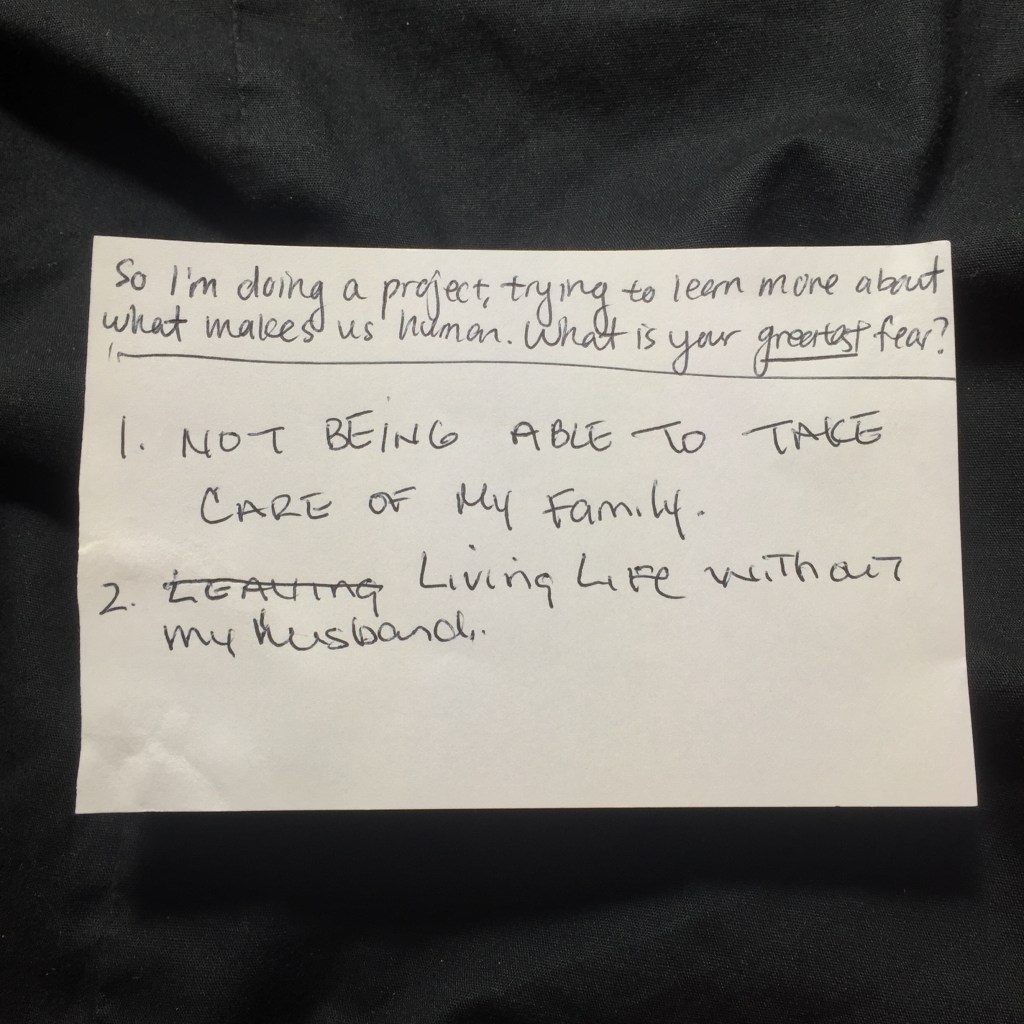 So I'm doing a project, trying to learn more about
what makes us human. What is your greatest fear?
1. NOT BEING ABLE TO TAKE
CARE OF My Family.
2. LEAVING Living LIFE WITHOUT
my husband.